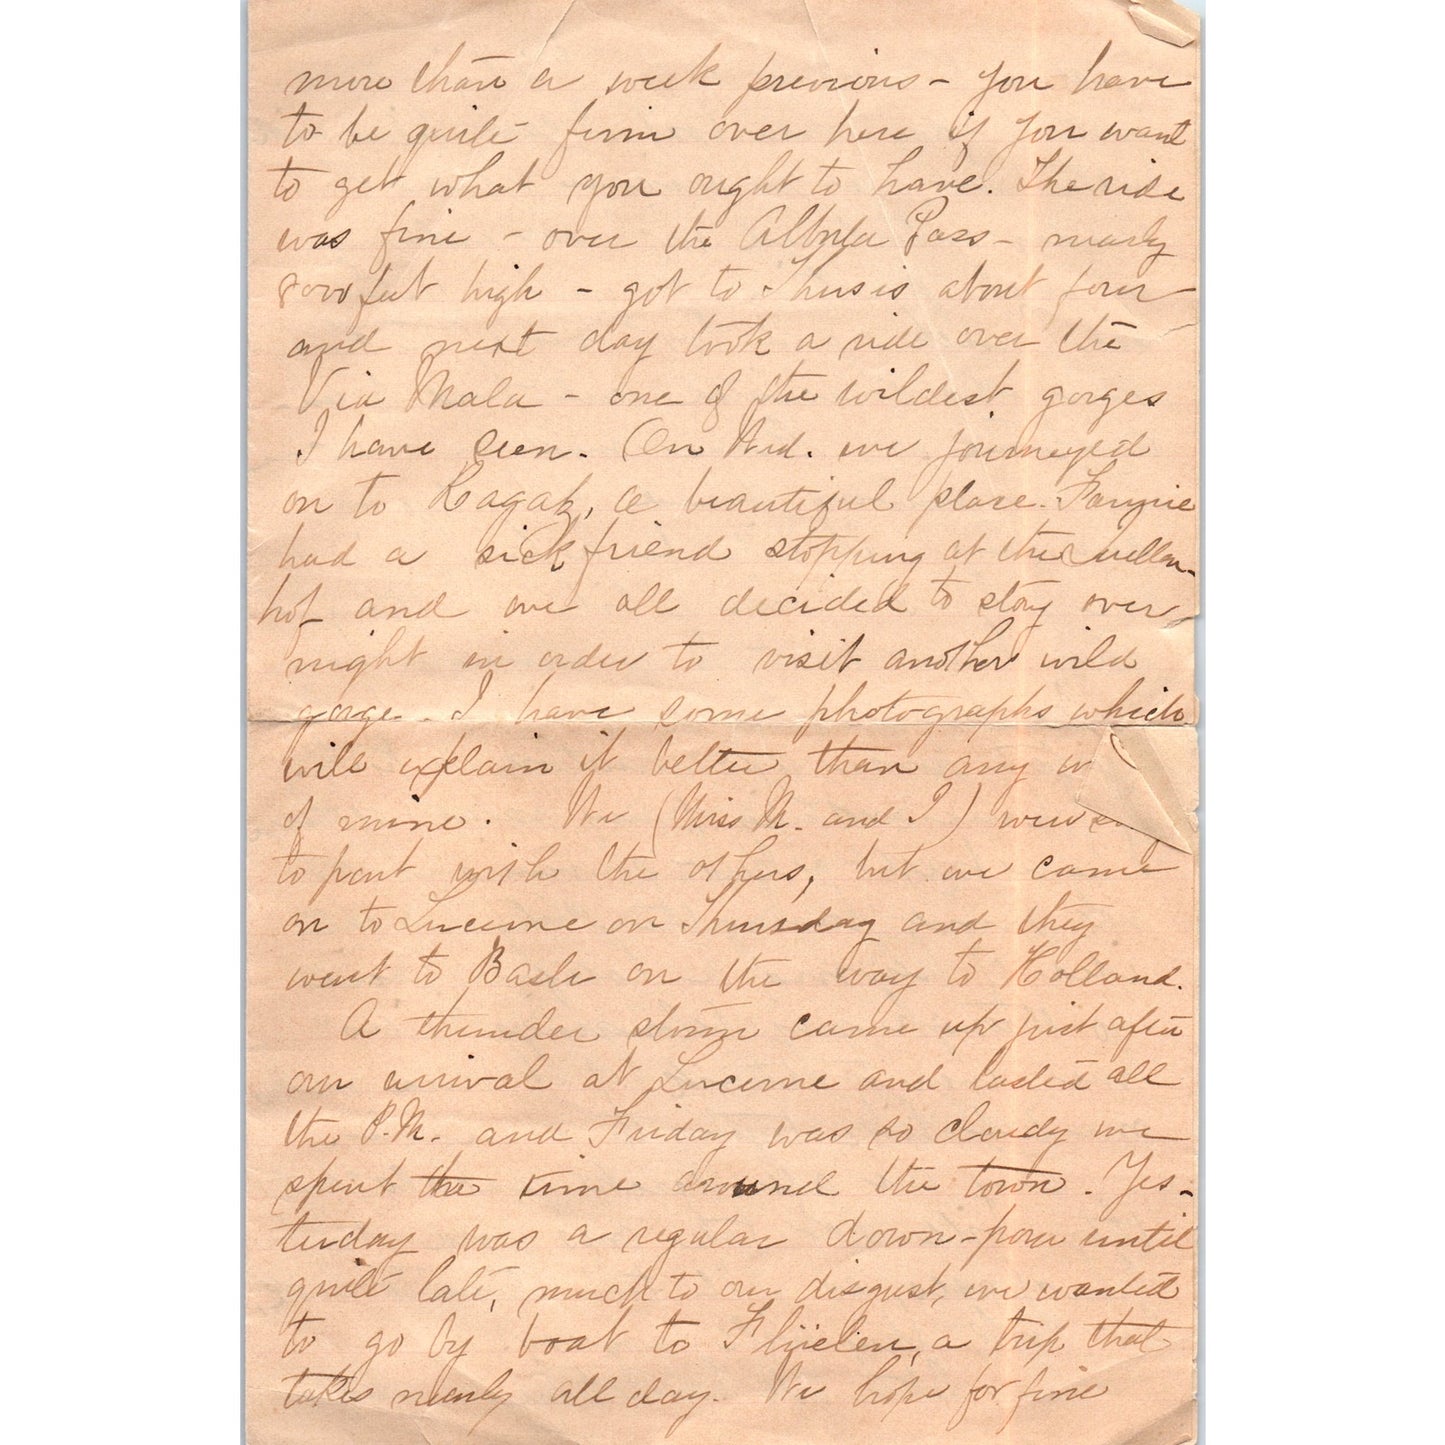 more than a week previous - you have
to be quite firm over here if you want
to get what you ought to have. The ride
was fine - over the Albula Pass - nearly
8000 feet high - got to Thusis about four -
and next day took a ride over the
Via Mala - one of the wildest gorges
I have seen. On Wed. we journeyed
on to Ragatz, a beautiful place. Fannie
had a sick friend stopping at the Quellen-
hof and we all decided to stay over
night in order to visit another wild
gorge. I have some photographs which
will explain it better than any
of mine. We (Miss M. and I) were
to part with the others, but we came
on to Lucerne on Thursday and they
went to Basle on the way to Holland.
A thunder storm came up just after
our arrival at Lucerne and lasted all
the P.M. and Friday was so cloudy we
spent the time around the town. Yes-
terday was a regular down-pour until
quite late, much to our disgust, we wanted
to go by boat to Flüelen, a trip that
takes nearly all day. We hope for fine